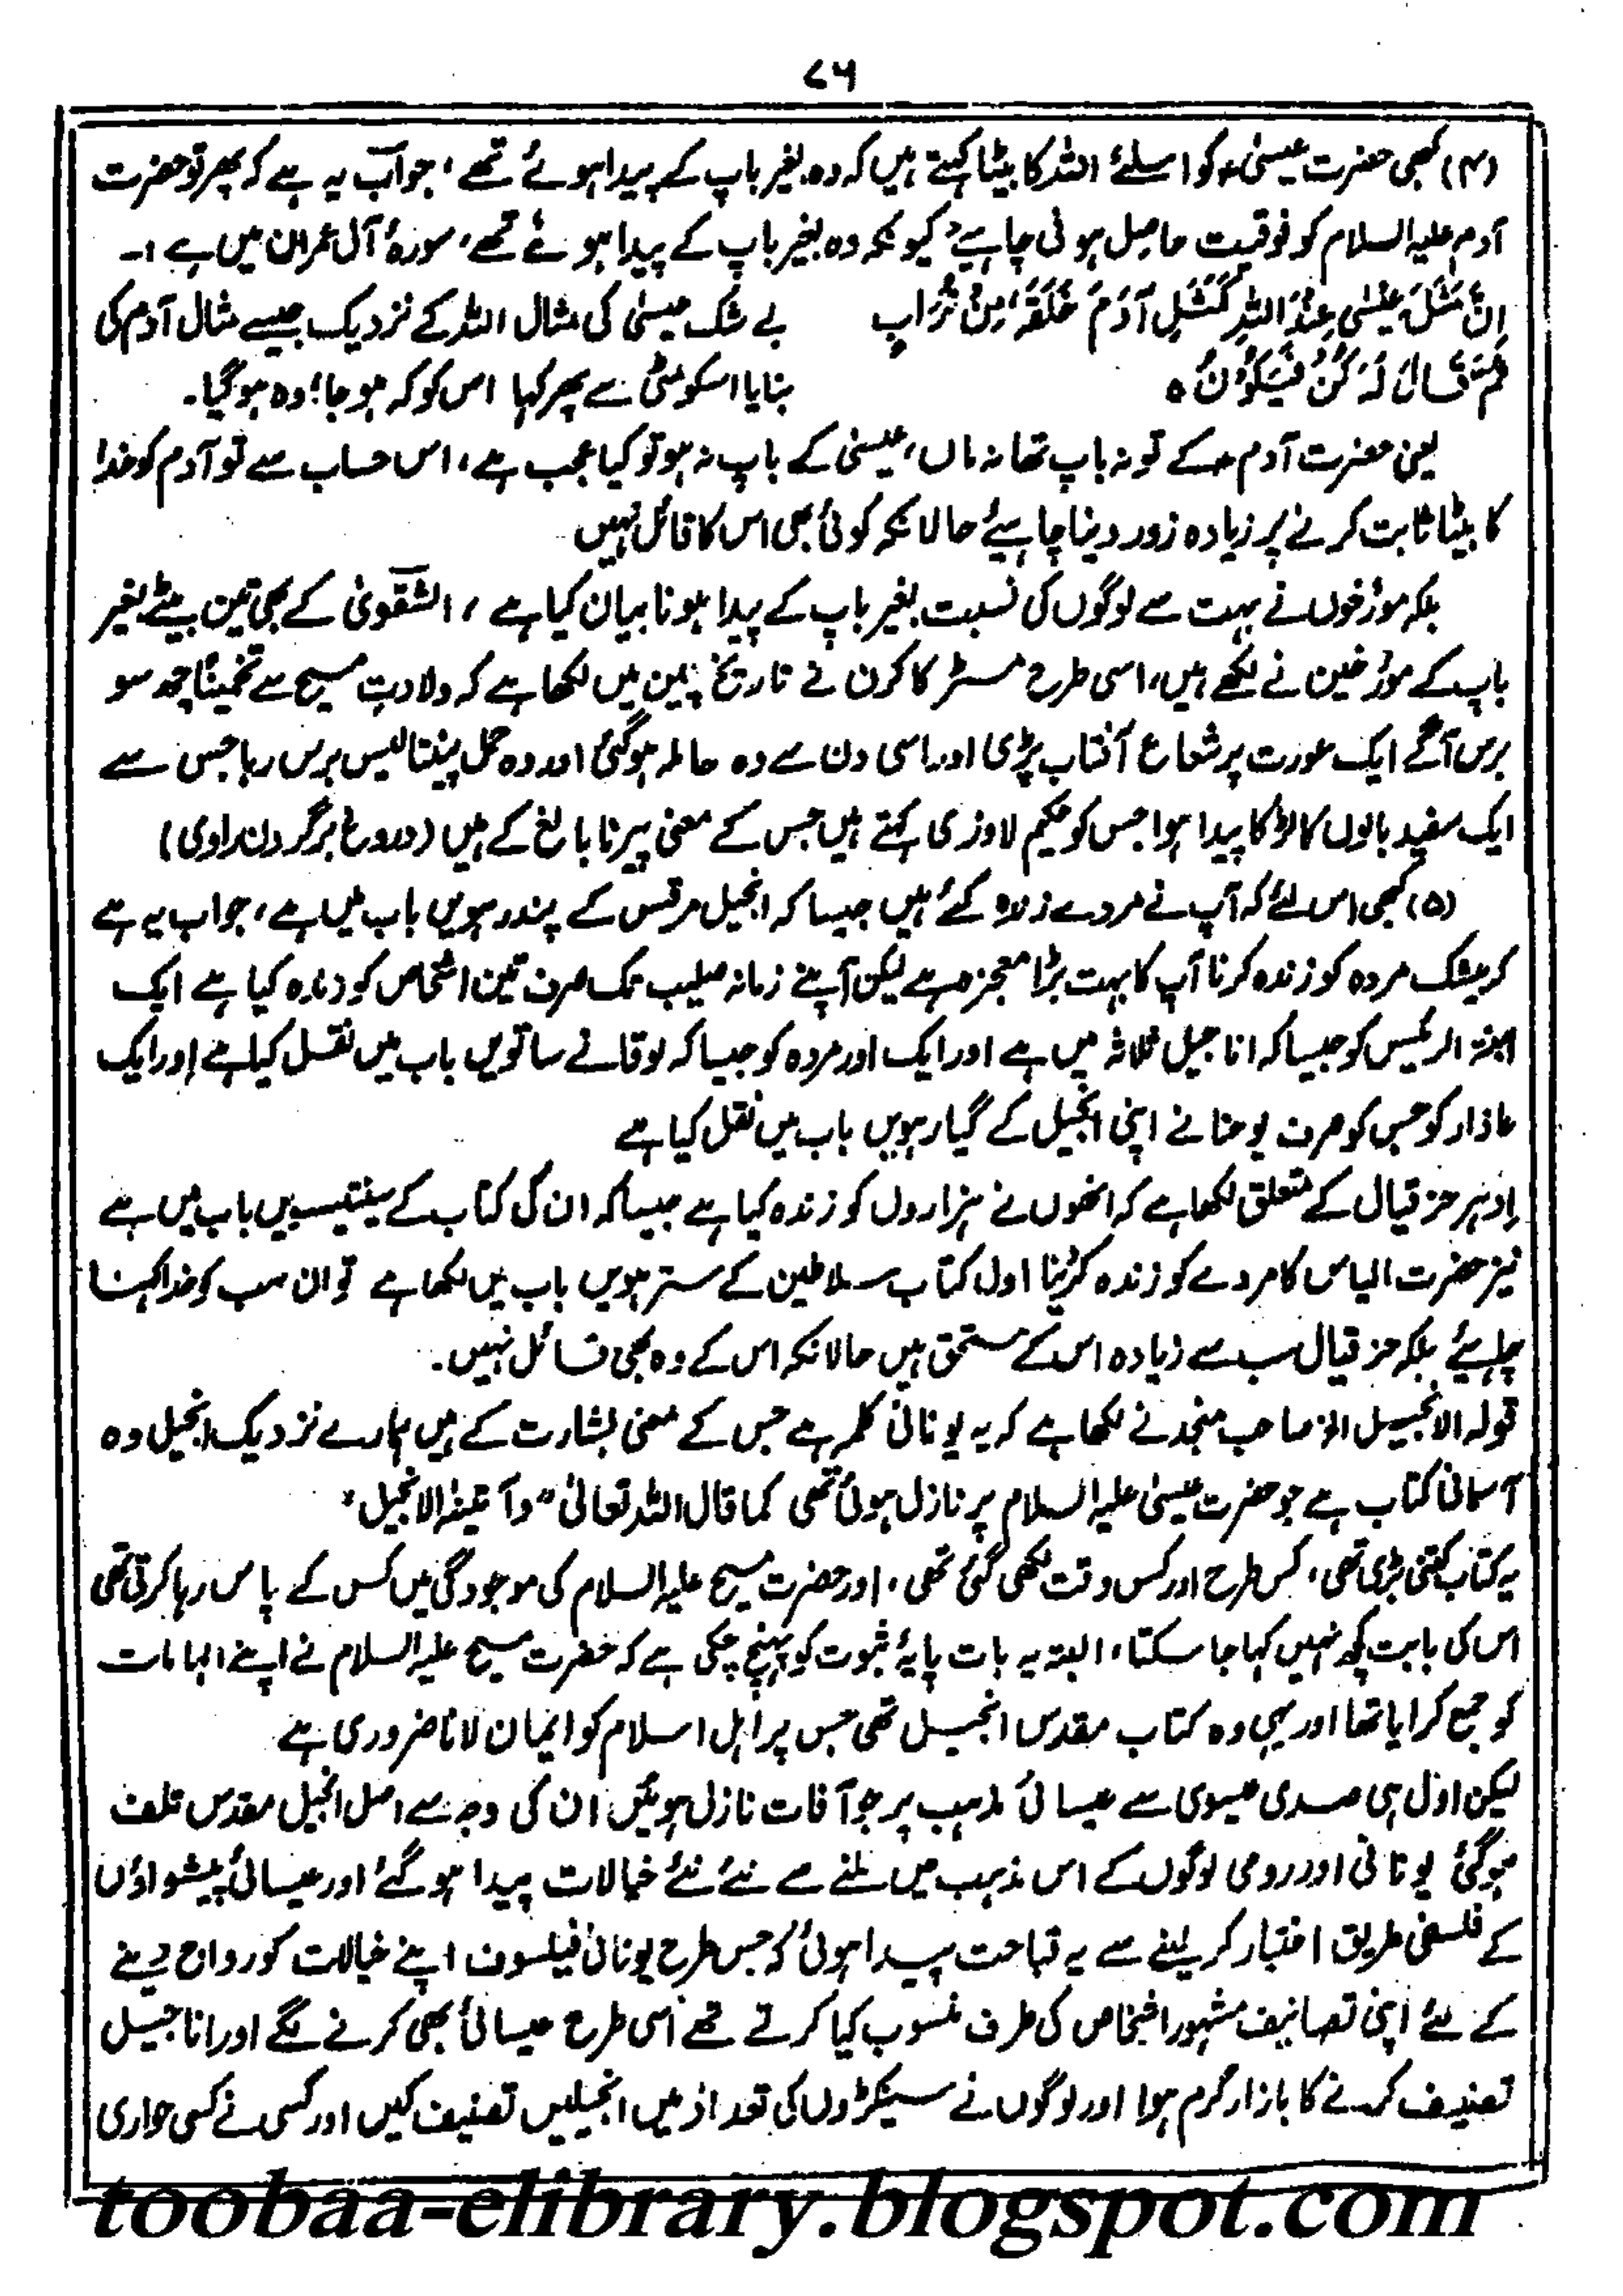 ۷۶
(۴) کبھی حضرت عیسیٰؑ کو اسلئے اللہ کا بیٹا کہتے ہیں کہ وہ بغیر باپ کے پیدا ہوئے تھے، جواب یہ ہے کہ پھر تو حضرت
آدم علیہ السلام کو فوقیت حاصل ہونی چاہیے، کیونکہ وہ بغیر باپ کے پیدا ہوئے تھے، سورۂ آل عمران میں ہے :۔
اِنَّ مَثَلَ عِیْسٰی عِنْدَ اللّٰہِ کَمَثَلِ آدَمَ خَلَقَہٗ مِنْ تُرَابٍ بے شک عیسیٰ کی مثال اللہ کے نزدیک جیسے مثال آدم کی
ثُمَّ قَالَ لَہٗ کُنْ فَیَکُوْنُ ہ بنایا اسکو مٹی سے پھر کہا اس کو کہ ہوجا؛ وہ ہوگیا۔
یعنی حضرت آدمؑ کے تو نہ باپ تھا نہ ماں، عیسیٰ کے باپ نہ ہو تو کیا عجب ہے، اس حساب سے تو آدم کو خدا
کا بیٹا ثابت کرنے پر زیادہ زور دینا چاہیئے حالانکہ کوئی بھی اس کا قائل نہیں
بلکہ مؤرخوں نے بہت سے لوگوں کی نسبت بغیر باپ کے پیدا ہونا بیان کیا ہے، الشقویٰ کے بھی تین بیٹے بغیر
باپ کے مؤرخین نے لکھے ہیں، اسی طرح مسٹر کاکرن نے تاریخ چین میں لکھا ہے کہ ولادتِ مسیح سے تخمیناً چھ سو
برس آگے ایک عورت پر شعاع آفتاب پڑی اور اسی دن سے وہ حاملہ ہوگئی اور وہ حمل پینتالیس برس رہا جس سے
ایک سفید بالوں کا لڑکا پیدا ہوا جس کو حکیم لاوزی کہتے ہیں جس کے معنی پیر نابالغ کے ہیں (دروغ برگردن راوی)
(۵) کبھی اس لئے کہ آپ نے مردے زندہ کئے ہیں جیسا کہ انجیل مرقس کے پندرہویں باب میں ہے، جواب یہ ہے
کہ بیشک مردہ کو زندہ کرنا آپ کا بہت بڑا معجزہ ہے لیکن آپنے زمانۂ صلیب تک صرف تین اشخاص کو زندہ کیا ہے ایک
ابنۃ الرئیس کو جیسا کہ اناجیل ثلاثہ میں ہے اور ایک اور مردہ کو جیسا کہ لوقا نے ساتویں باب میں نقل کیا ہے اور ایک
عاذار کو جس کو صرف یوحنا نے اپنی انجیل کے گیارہویں باب میں نقل کیا ہے
اِدہر حزقیال کے متعلق لکھا ہے کہ انھوں نے ہزاروں کو زندہ کیا ہے جیسا کہ ان کی کتاب کے سینتیسویں باب میں ہے
نیز حضرت الیاس کا مردے کو زندہ کرنا اول کتاب سلاطین کے سترہویں باب میں لکھا ہے تو ان سب کو خدا کہنا
چاہیئے بلکہ حزقیال سب سے زیادہ اس کے مستحق ہیں حالانکہ اس کے وہ بھی قائل نہیں۔
قولہ الانجیل الخ صاحب منجد نے لکھا ہے کہ یہ یونانی کلمہ ہے جس کے معنی بشارت کے ہیں ہمارے نزدیک انجیل وہ
آسمانی کتاب ہے جو حضرت عیسیٰ علیہ السلام پر نازل ہوئی تھی کما قال اللہ تعالیٰ "وآتینٰہ الانجیل"
یہ کتاب کتنی بڑی تھی، کس طرح اور کس وقت لکھی گئی تھی، اور حضرت مسیح علیہ السلام کی موجودگی میں کس کے پاس رہا کرتی تھی
اس کی بابت کچھ نہیں کہا جا سکتا، البتہ یہ بات پایۂ ثبوت کو پہنچ چکی ہے کہ حضرت مسیح علیہ السلام نے اپنے الہامات
کو جمع کرایا تھا اور یہی وہ کتاب مقدس انجیل تھی جس پر اہل اسلام کو ایمان لانا ضروری ہے
لیکن اول ہی صدی عیسوی سے عیسائی مذہب پر جو آفات نازل ہوئیں ان کی وجہ سے اصل انجیل مقدس تلف
ہوگئی یونانی اور رومی لوگوں کے اس مذہب میں ملنے سے نئے نئے خیالات پیدا ہوگئے اور عیسائی پیشواؤں
کے فلسفی طریق اختیار کرلینے سے یہ قباحت پیدا ہوئی کہ جس طرح یونانی فیلسوف اپنے خیالات کو رواج دینے
کے لئے اپنی تصانیف مشہور اشخاص کی طرف منسوب کیا کرتے تھے اسی طرح عیسائی بھی کرنے لگے اور اناجیل
تصنیف کرنے کا بازار گرم ہوا اور لوگوں نے سینکڑوں کی تعداد میں انجیلیں تصنیف کیں اور کسی نے کسی حواری
toobaa-elibrary.blogspot.com